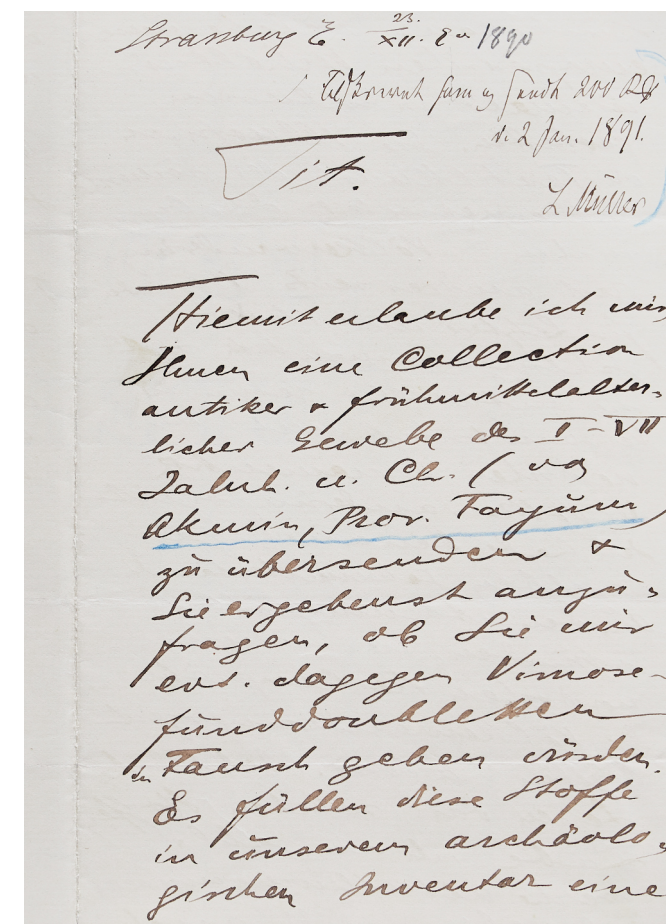 Strassburg E. 23. XII. 1890
200
d. 2 Jan. 1891.
Tit.
L Müller
Hiemit erlaube ich mir
Ihnen eine Collection
antiker & frühmittelalter-
licher Gewebe des II-VII
Jahrh. n. Chr. (von
Akmin, Prov. Fayûm)
zu übersenden &
Sie ergebenst anzu-
fragen, ob Sie mir
evt. dagegen Vimose-
funddoubletten
in Tausch geben würden.
Es füllen diese Stoffe
in unserem archäolo-
gischen Inventar eine